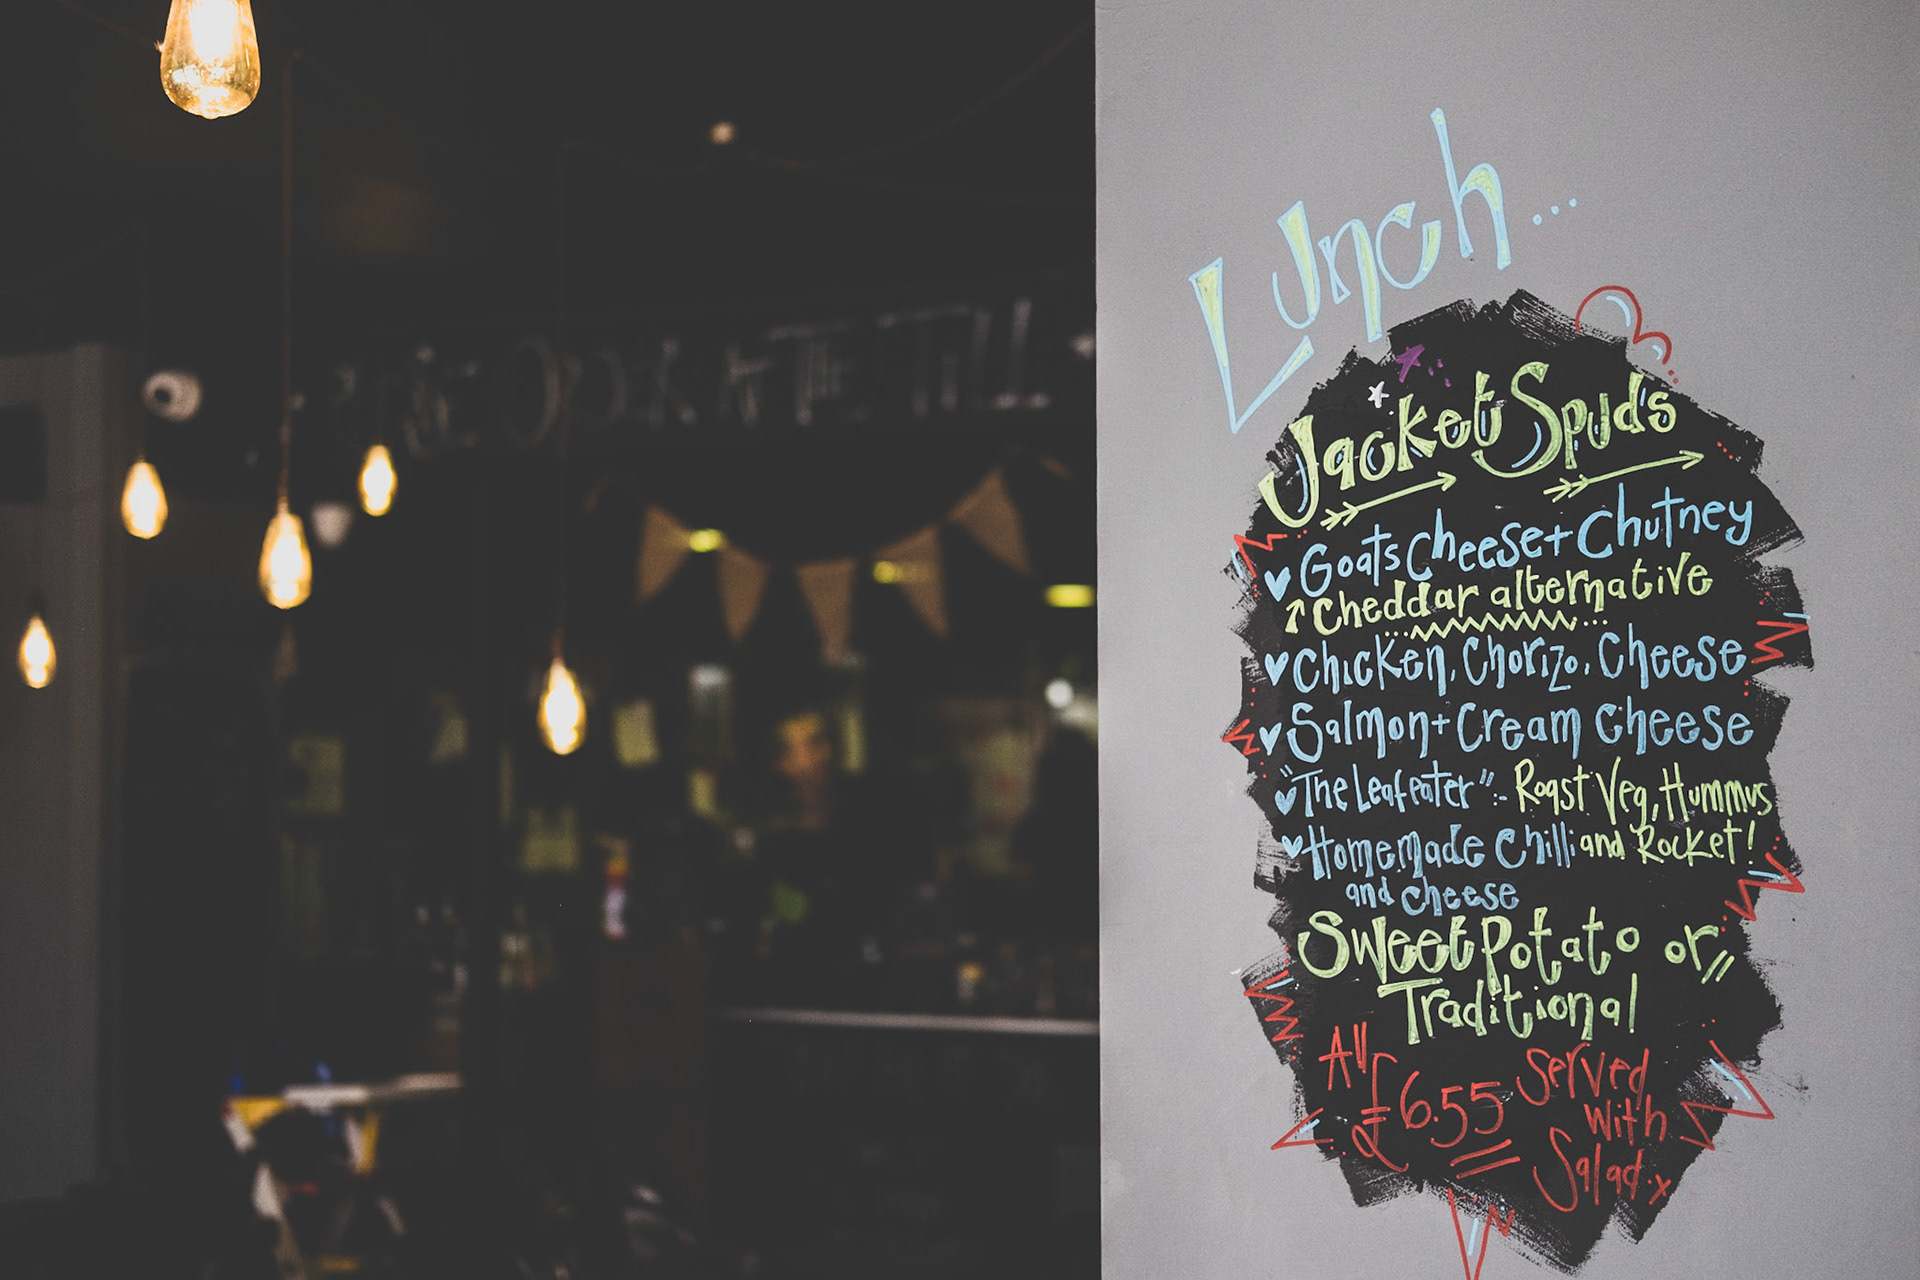 Lunch...
Jacket Spuds
Goats Cheese + Chutney
Cheddar alternative
Chicken, Chorizo, Cheese
Salmon + Cream Cheese
"The Leafeater":- Roast Veg, Hummus
and Rocket!
Homemade Chilli
and cheese
Sweet Potato or
Traditional
All £6.55 Served
with
Salad x